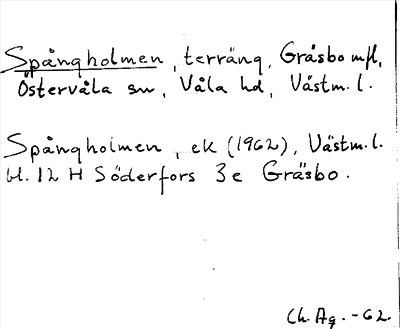 Spångholmen, terräng, Gräsbo mfl,
Östervåla sn, Våla hd, Västm.l.
Spångholmen, ek (1962), Västm.l.
bl. 12 H Söderfors 3e Gräsbo.
Ch. Ag. -62.